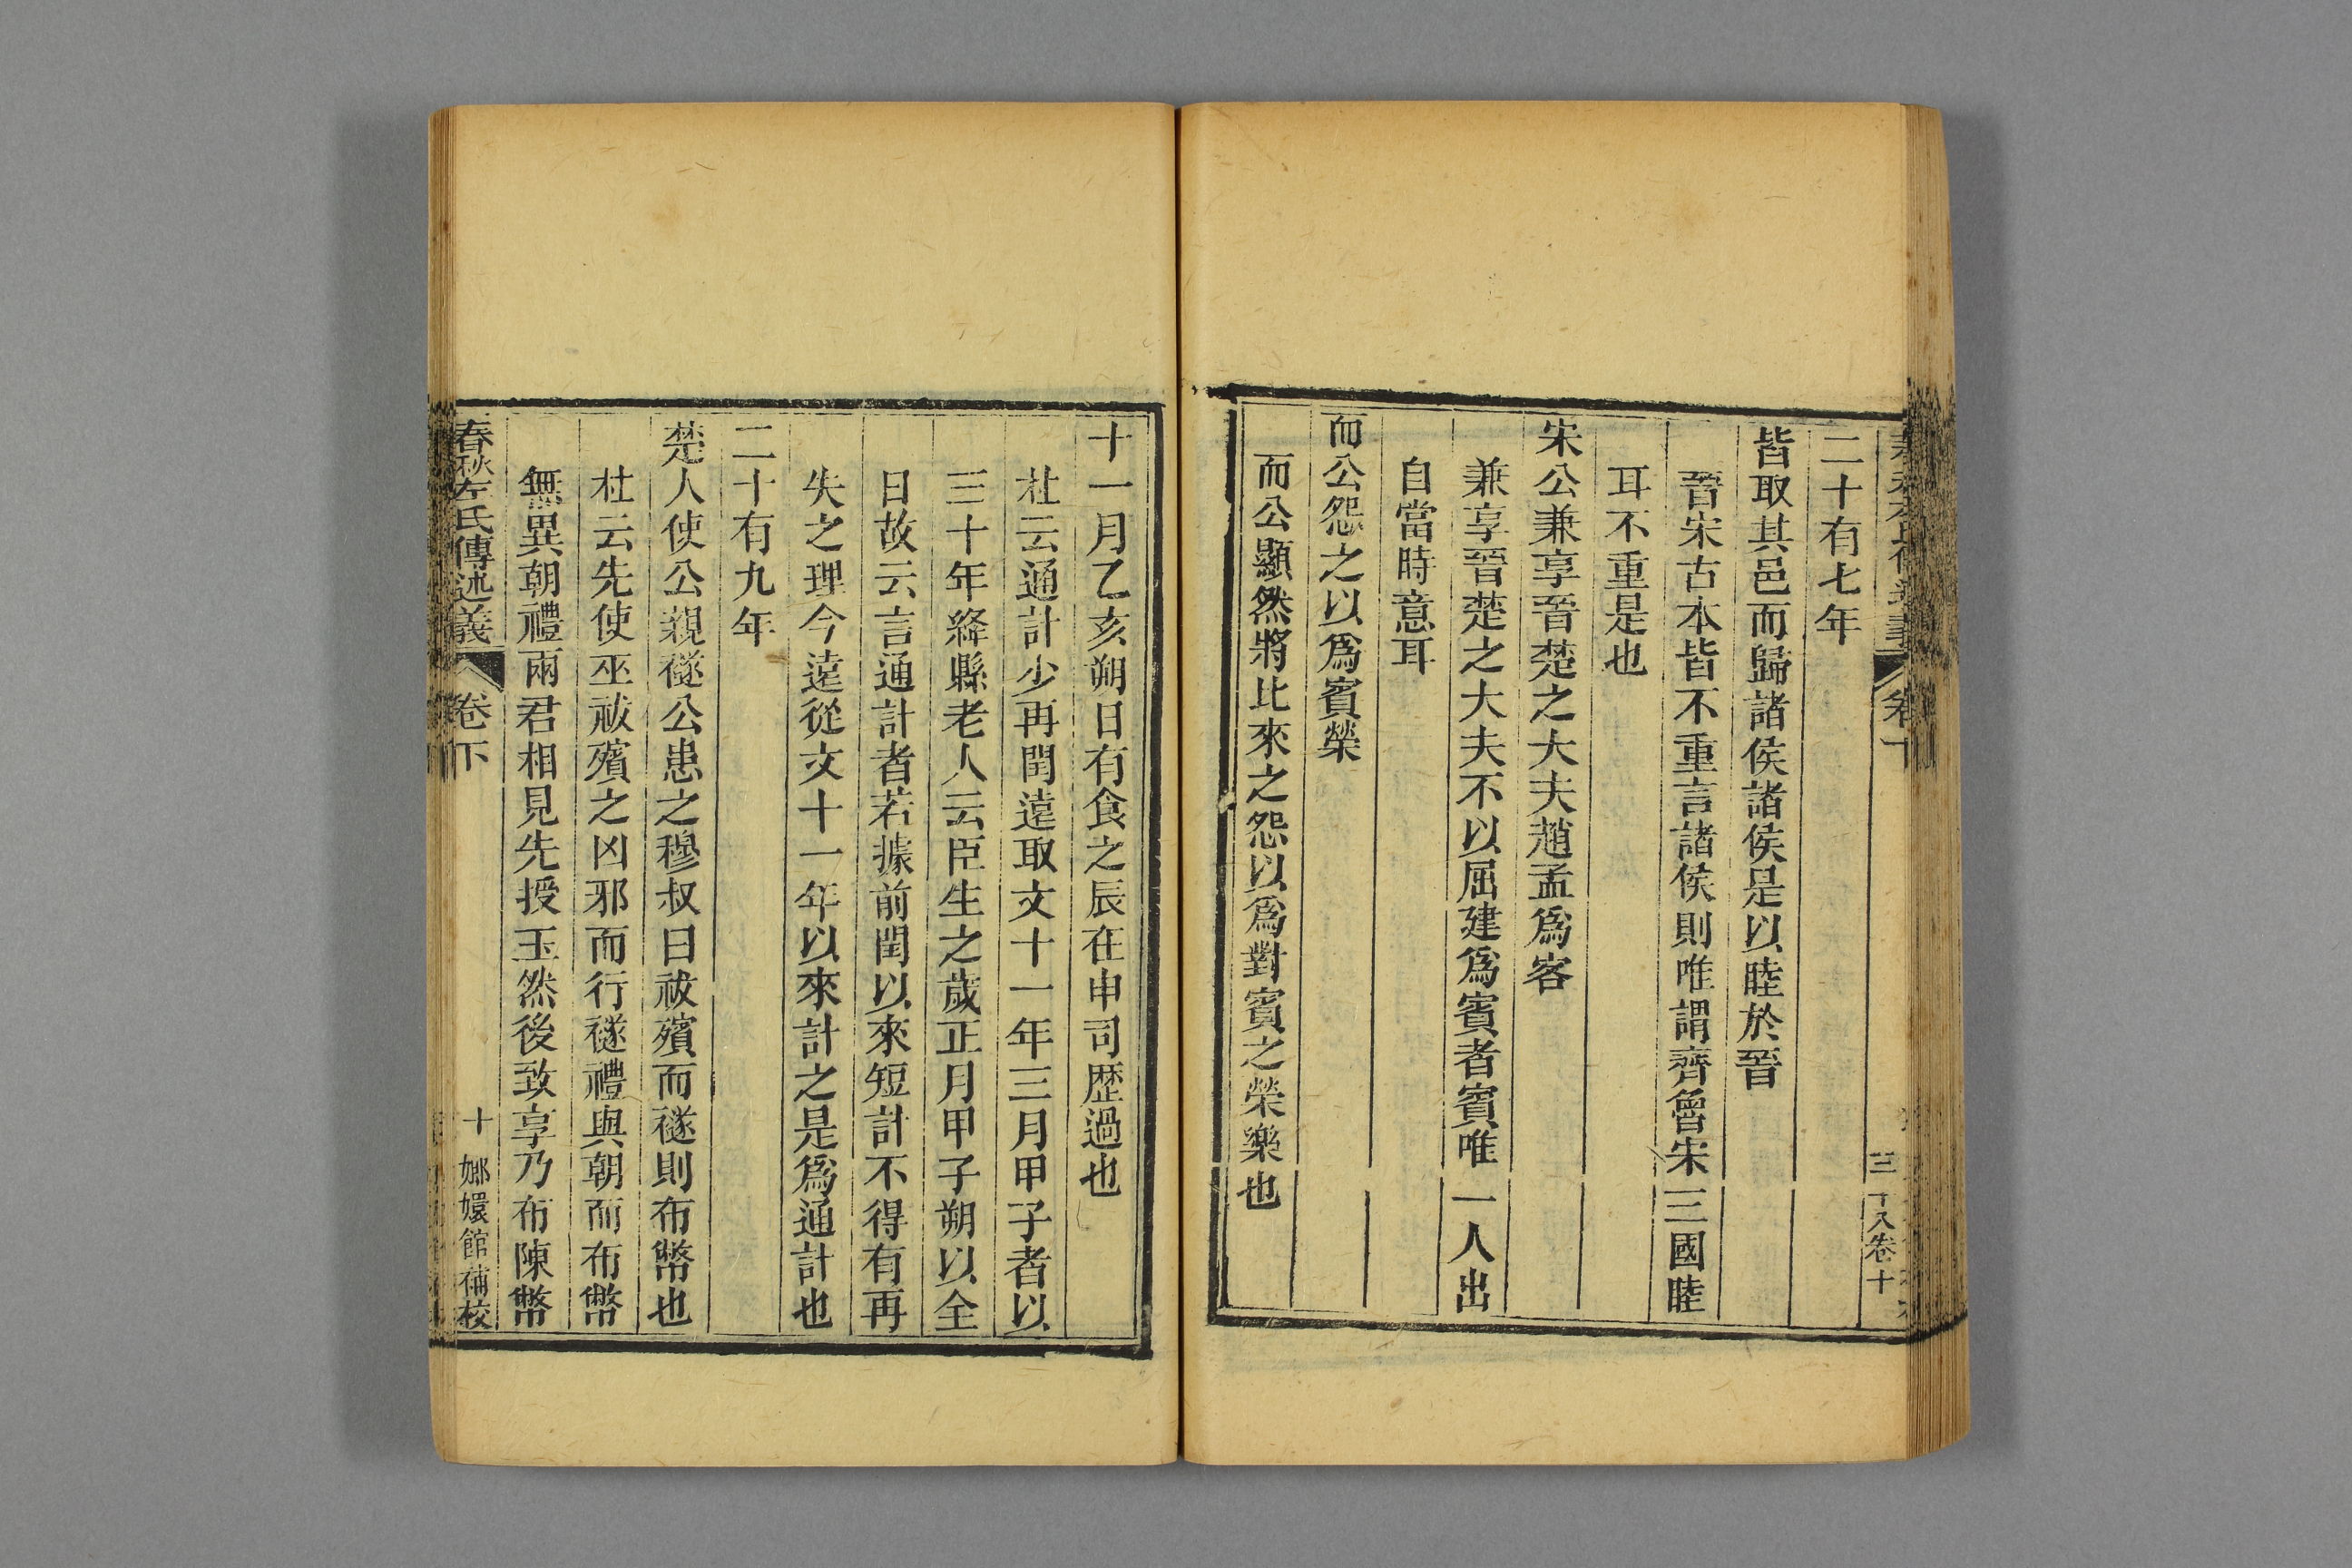 二十有七年
皆取其邑而歸諸侯諸侯是以睦於晉
晉宋古本皆不重言諸侯則唯謂齊魯宋三國睦
耳不重是也
宋公兼享晉楚之大夫趙孟爲客
兼享晉楚之大夫不以屈建爲賓者賓唯一人出
自當時意耳
而公怨之以爲賓榮
而公顯然將比來之怨以爲對賓之榮樂也
十一月乙亥朔日有食之辰在申司歷過也
杜云通計少再閏遠取文十一年三月甲子者以
三十年絳縣老人云臣生之歲正月甲子朔以全
日故云言通計者若據前閏以來短計不得有再
失之理今遠從文十一年以來計之是爲通計也
二十有九年
楚人使公親襚公患之穆叔曰祓殯而襚則布幣也
杜云先使巫祓殯之凶邪而行襚禮與朝而布幣
無異朝禮兩君相見先授玉然後致享乃布陳幣
春秋左氏傳述義 卷下 十 嫏嬛館補校